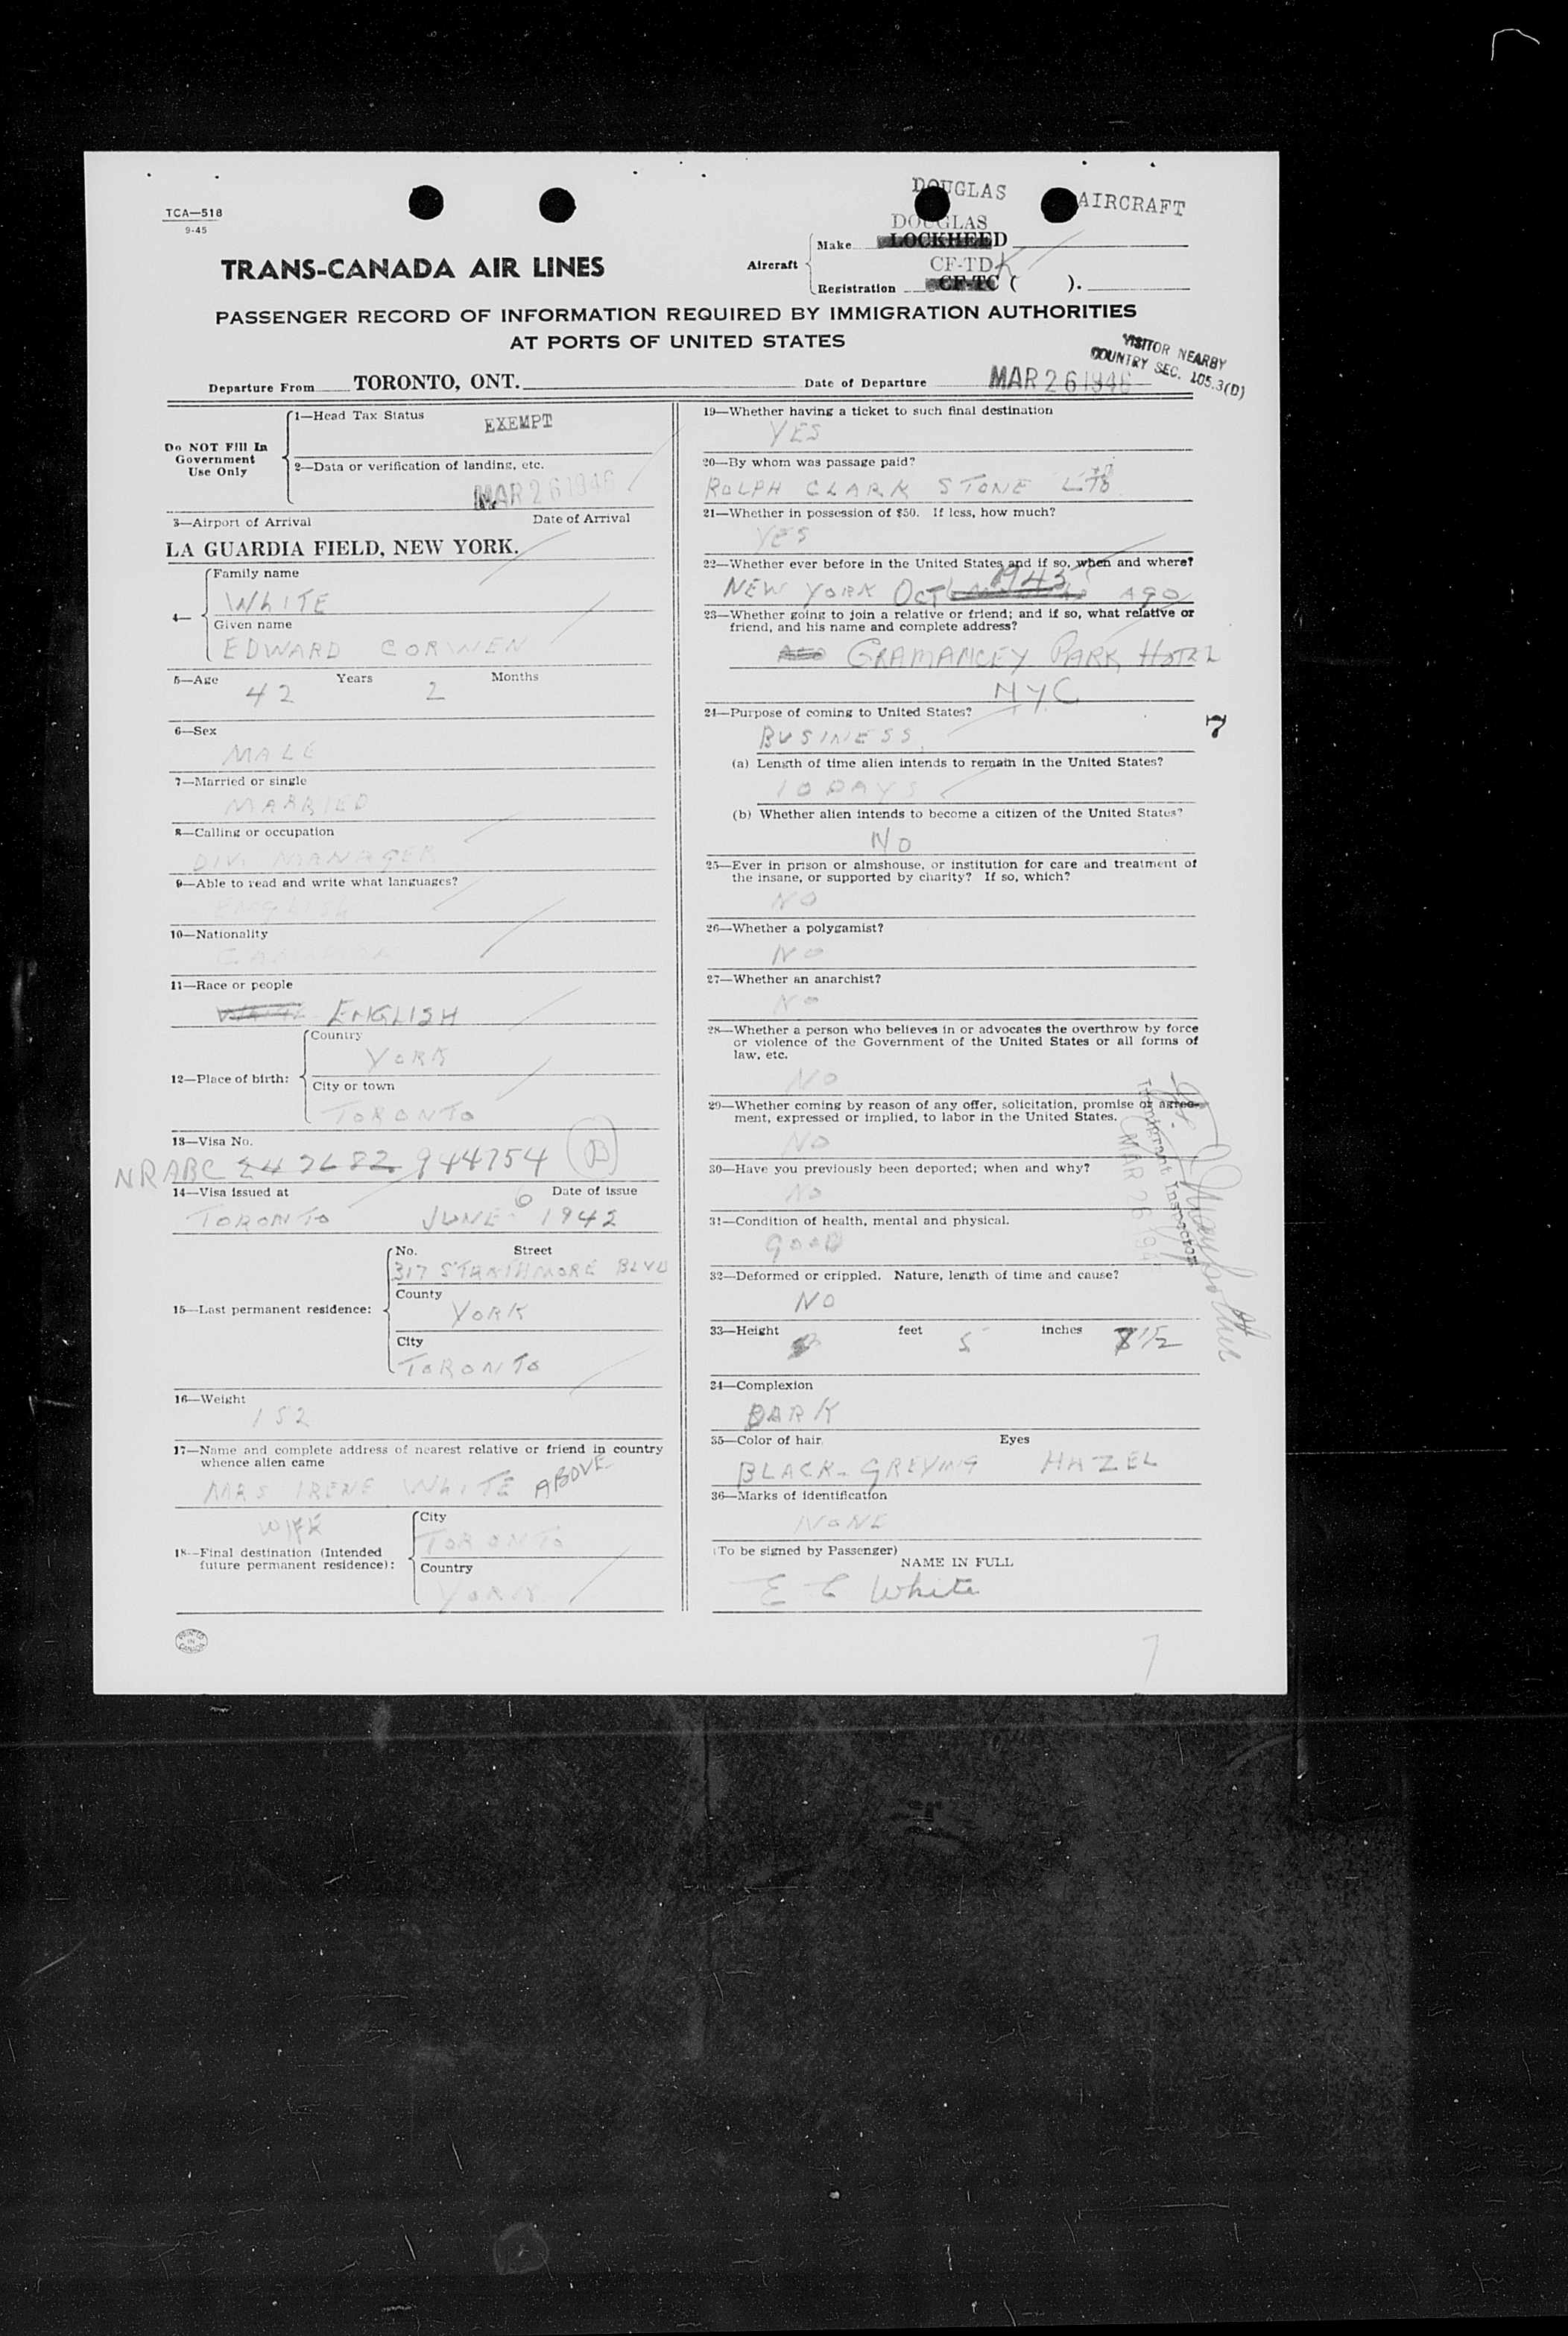 TCA—518
9-45
DOUGLAS AIRCRAFT
DOUGLAS
Make LOCKHEED
TRANS-CANADA AIR LINES
Aircraft
CF-TDK
Registration CF-TC ( ).
PASSENGER RECORD OF INFORMATION REQUIRED BY IMMIGRATION AUTHORITIES
AT PORTS OF UNITED STATES
VISITOR NEARBY
COUNTRY SEC. 105.3(D)
Departure From TORONTO, ONT. Date of Departure MAR 26 1946
Do NOT Fill In
Government
Use Only
1—Head Tax Status
EXEMPT
2—Data or verification of landing, etc.
MAR 26 1946
3—Airport of Arrival Date of Arrival
LA GUARDIA FIELD, NEW YORK.
4—
Family name
WHITE
Given name
EDWARD CORWEN
5—Age 42 Years 2 Months
6—Sex
MALE
7—Married or single
MARRIED
8—Calling or occupation
DIV. MANAGER
9—Able to read and write what languages?
ENGLISH
10—Nationality
CANADIAN
11—Race or people
WHITE ENGLISH
12—Place of birth:
Country
YORK
City or town
TORONTO
13—Visa No.
NRABC 247682 944754 (B)
14—Visa issued at Date of issue
TORONTO JUNE 6 1942
15—Last permanent residence:
No. Street
317 STRATHMORE BLVD
County
YORK
City
TORONTO
16—Weight
152
17—Name and complete address of nearest relative or friend in country
whence alien came
MRS IRENE WHITE ABOVE
WIFE
18—Final destination (Intended
future permanent residence):
City
TORONTO
Country
YORK
PRINTED
IN
CANADA
19—Whether having a ticket to such final destination
YES
20—By whom was passage paid?
ROLPH CLARK STONE LTD
21—Whether in possession of $50. If less, how much?
YES
22—Whether ever before in the United States and if so, when and where?
NEW YORK OCT 1945 AGO
23—Whether going to join a relative or friend; and if so, what relative or
friend, and his name and complete address?
GRAMANCEY PARK HOTEL
NYC
24—Purpose of coming to United States?
BUSINESS
7
(a) Length of time alien intends to remain in the United States?
10 DAYS
(b) Whether alien intends to become a citizen of the United States?
NO
25—Ever in prison or almshouse, or institution for care and treatment of
the insane, or supported by charity? If so, which?
NO
26—Whether a polygamist?
NO
27—Whether an anarchist?
NO
28—Whether a person who believes in or advocates the overthrow by force
or violence of the Government of the United States or all forms of
law, etc.
NO
29—Whether coming by reason of any offer, solicitation, promise or agree-
ment, expressed or implied, to labor in the United States.
NO
30—Have you previously been deported; when and why?
NO
Immigrant Inspector
MAR 26 194
31—Condition of health, mental and physical.
GOOD
32—Deformed or crippled. Nature, length of time and cause?
NO
33—Height feet 5 inches 7 1/2
34—Complexion
DARK
35—Color of hair Eyes
BLACK - GREYING HAZEL
36—Marks of identification
NONE
(To be signed by Passenger)
NAME IN FULL
E C White
7